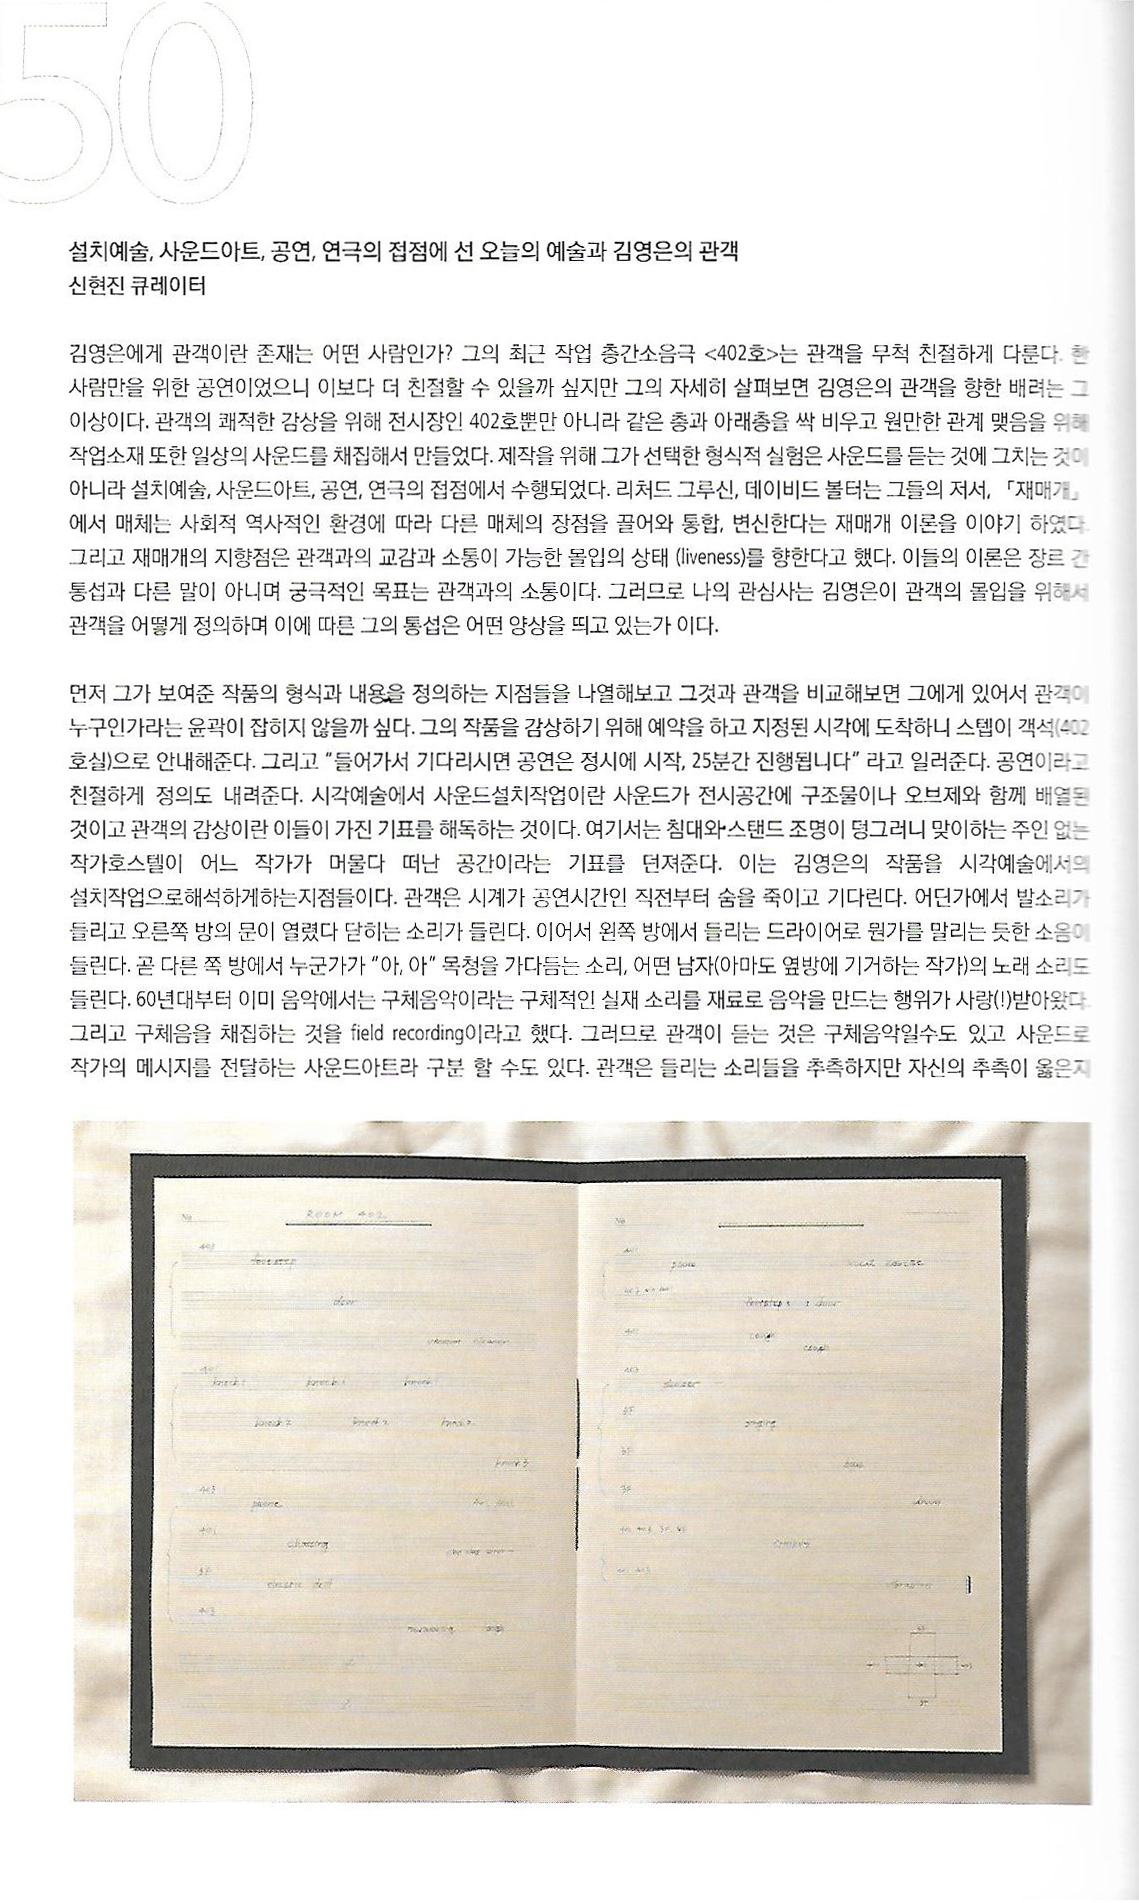 50
설치예술, 사운드아트, 공연, 연극의 접점에 선 오늘의 예술과 김영은의 관객
신현진 큐레이터
김영은에게 관객이란 존재는 어떤 사람인가? 그의 최근 작업 층간소음극 <402호>는 관객을 무척 친절하게 다룬다. 한
사람만을 위한 공연이었으니 이보다 더 친절할 수 있을까 싶지만 그의 자세히 살펴보면 김영은의 관객을 향한 배려는 그
이상이다. 관객의 쾌적한 감상을 위해 전시장인 402호뿐만 아니라 같은 층과 아래층을 싹 비우고 원만한 관계 맺음을 위해
작업소재 또한 일상의 사운드를 채집해서 만들었다. 제작을 위해 그가 선택한 형식적 실험은 사운드를 듣는 것에 그치는 것이
아니라 설치예술, 사운드아트, 공연, 연극의 접점에서 수행되었다. 리처드 그루신, 데이비드 볼터는 그들의 저서, 「재매개」
에서 매체는 사회적 역사적인 환경에 따라 다른 매체의 장점을 끌어와 통합, 변신한다는 재매개 이론을 이야기 하였다.
그리고 재매개의 지향점은 관객과의 교감과 소통이 가능한 몰입의 상태 (liveness)를 향한다고 했다. 이들의 이론은 장르 간
통섭과 다른 말이 아니며 궁극적인 목표는 관객과의 소통이다. 그러므로 나의 관심사는 김영은이 관객의 몰입을 위해서
관객을 어떻게 정의하며 이에 따른 그의 통섭은 어떤 양상을 띄고 있는가 이다.
먼저 그가 보여준 작품의 형식과 내용을 정의하는 지점들을 나열해보고 그것과 관객을 비교해보면 그에게 있어서 관객이
누구인가라는 윤곽이 잡히지 않을까 싶다. 그의 작품을 감상하기 위해 예약을 하고 지정된 시각에 도착하니 스텝이 객석(402
호실)으로 안내해준다. 그리고 “들어가서 기다리시면 공연은 정시에 시작, 25분간 진행됩니다” 라고 일러준다. 공연이라고
친절하게 정의도 내려준다. 시각예술에서 사운드설치작업이란 사운드가 전시공간에 구조물이나 오브제와 함께 배열된
것이고 관객의 감상이란 이들이 가진 기표를 해독하는 것이다. 여기서는 침대와 스탠드 조명이 덩그러니 맞이하는 주인 없는
작가호스텔이 어느 작가가 머물다 떠난 공간이라는 기표를 던져준다. 이는 김영은의 작품을 시각예술에서의
설치작업으로해석하게하는지점들이다. 관객은 시계가 공연시간인 직전부터 숨을 죽이고 기다린다. 어딘가에서 발소리가
들리고 오른쪽 방의 문이 열렸다 닫히는 소리가 들린다. 이어서 왼쪽 방에서 들리는 드라이어로 뭔가를 말리는 듯한 소음이
들린다. 곧 다른 쪽 방에서 누군가가 “아, 아” 목청을 가다듬는 소리, 어떤 남자(아마도 옆방에 기거하는 작가)의 노래 소리도
들린다. 60년대부터 이미 음악에서는 구체음악이라는 구체적인 실재 소리를 재료로 음악을 만드는 행위가 사랑(!)받아왔다.
그리고 구체음을 채집하는 것을 field recording이라고 했다. 그러므로 관객이 듣는 것은 구체음악일수도 있고 사운드로
작가의 메시지를 전달하는 사운드아트라 구분 할 수도 있다. 관객은 들리는 소리들을 추측하지만 자신의 추측이 옳은지
No
ROOM 402
403
footstep
door
vacuum cleaner
401
knock 1 knock 1 knock 1
knock 2 knock 2 knock 2
knock 3
403
phone
401
3F
electric drill
403
No
401
phone
footsteps
401
cough
cough
403
3F
singing
3F
3F